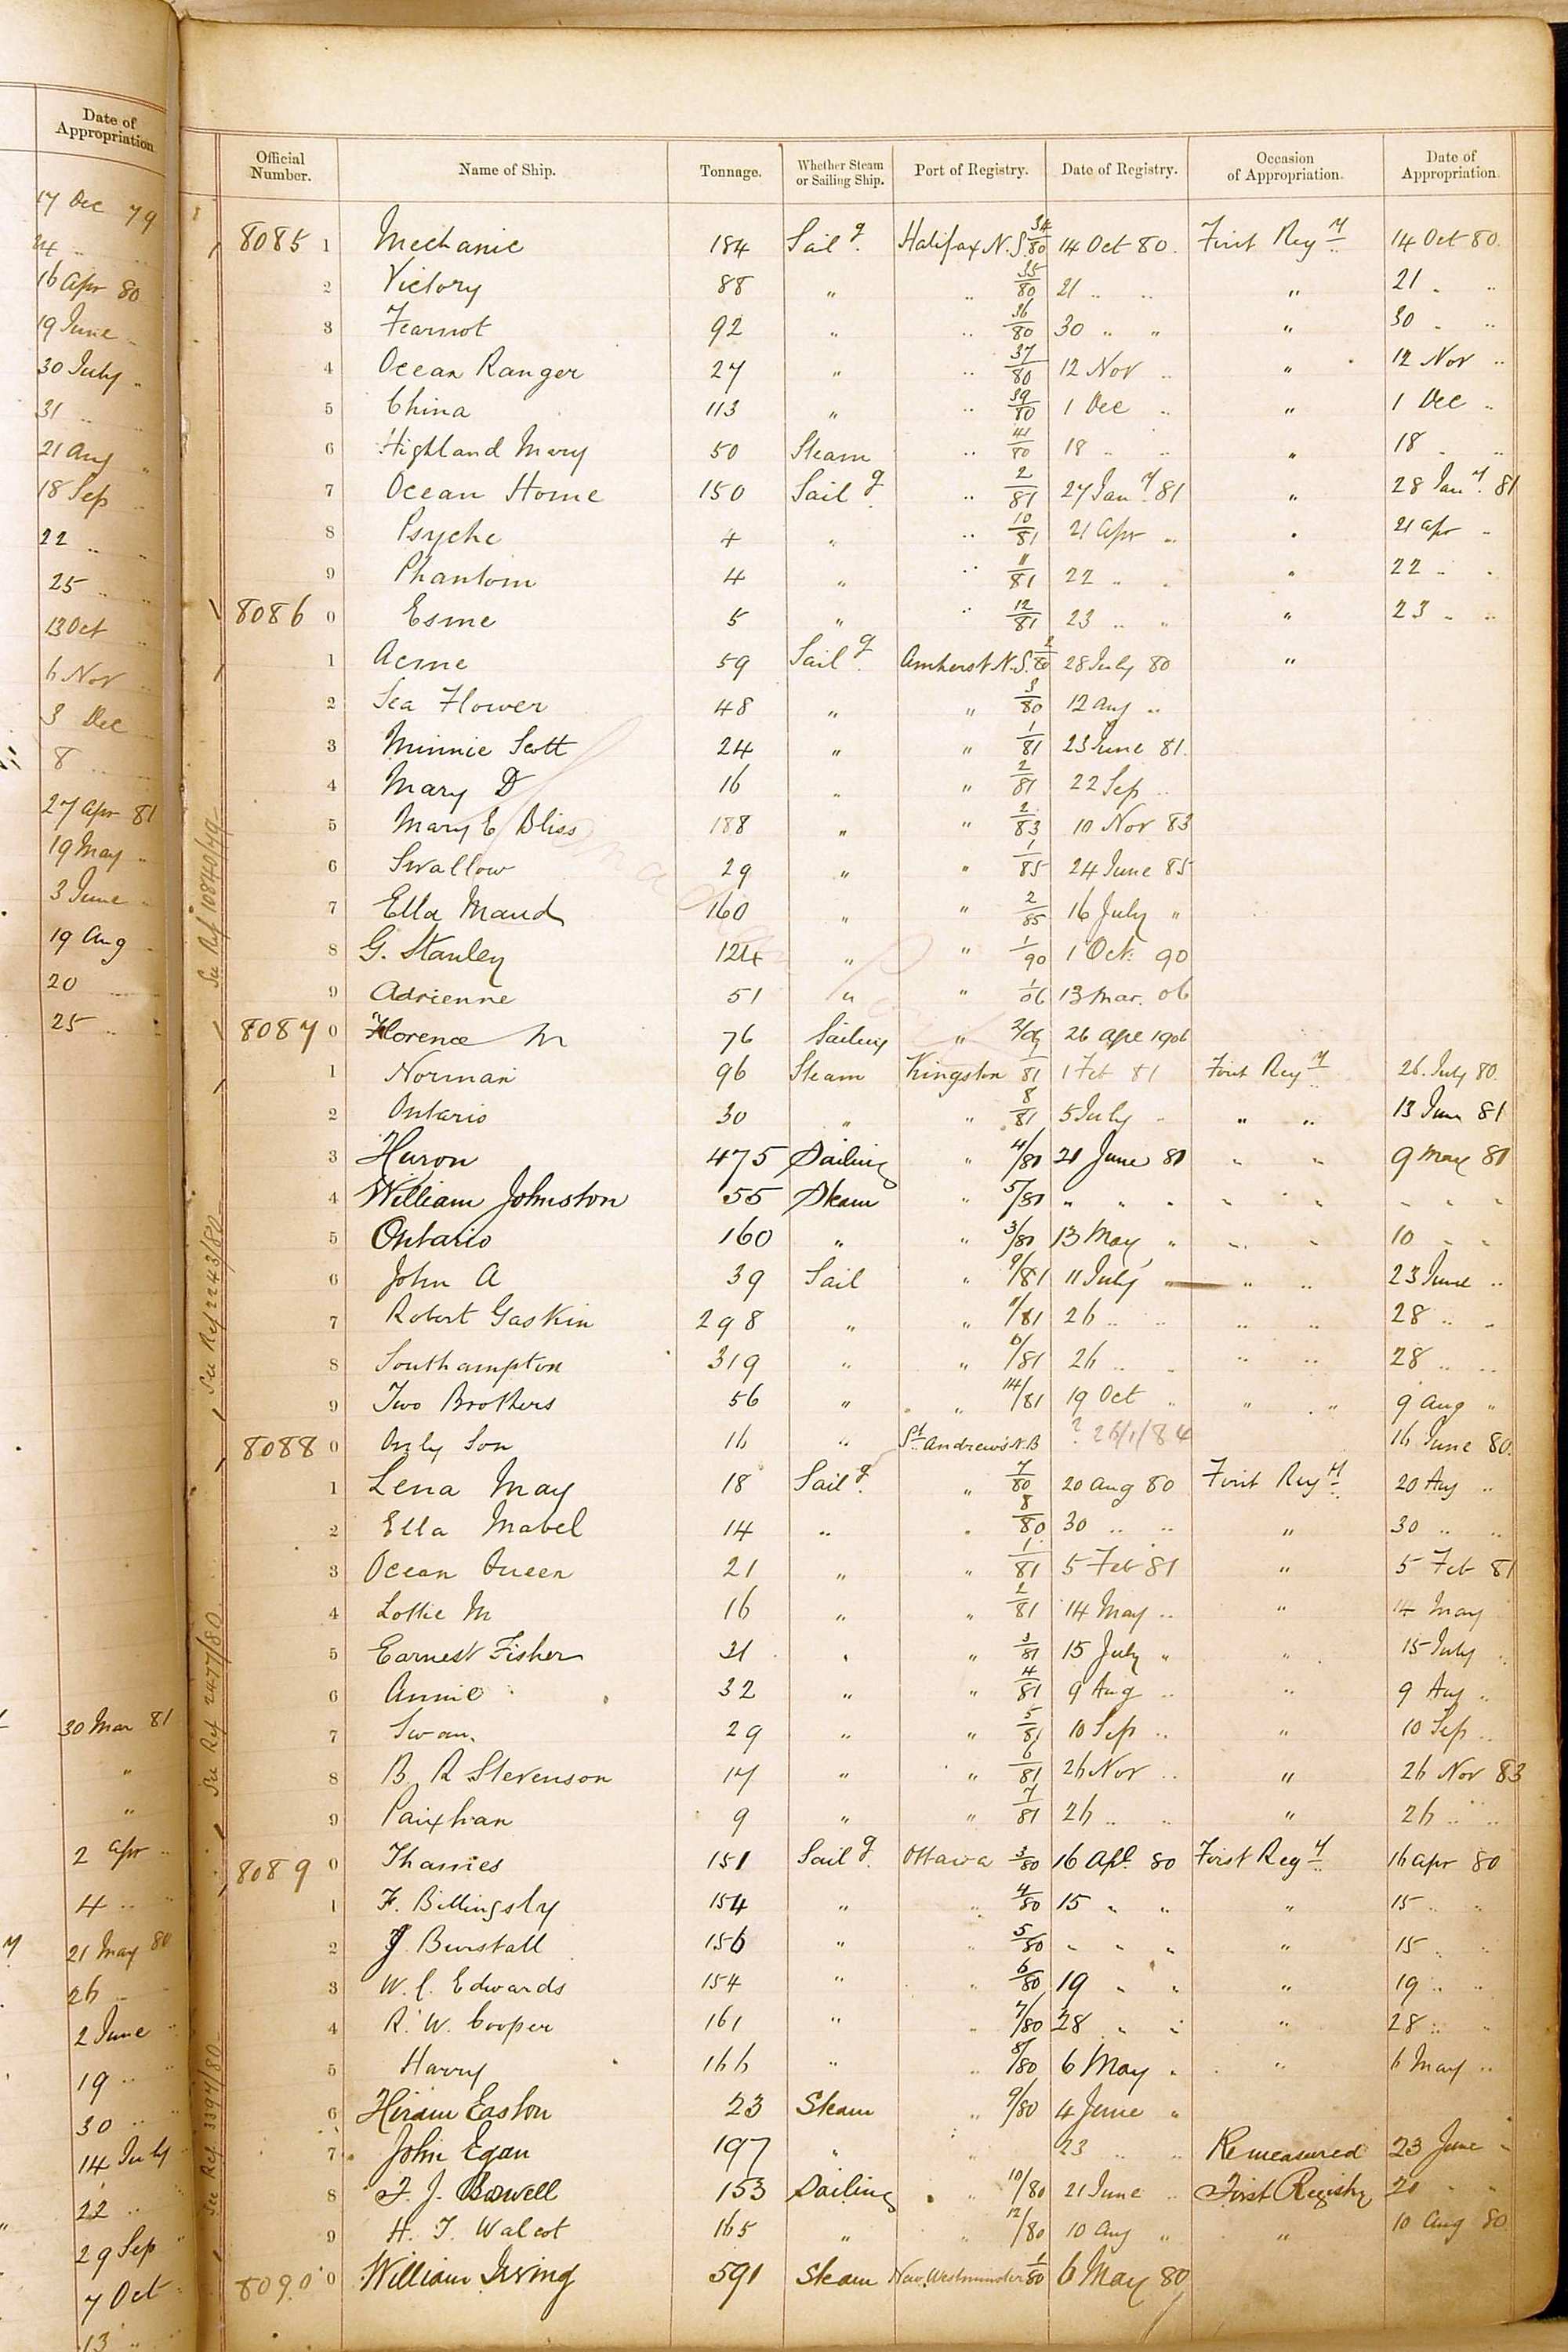 Date of Appropriation.
17 Dec 79
24 " "
16 Apr 80
19 June "
30 July "
31 " "
21 Aug "
18 Sep "
22 " "
25 " "
13 Oct "
6 Nov "
3 Dec "
8 " "
27 Apr 81
19 May "
3 June "
19 Aug "
20 " "
25 " "
30 Mar 81
"
"
2 Apr "
4 " "
21 May 80
26 " "
2 June "
19 " "
30 " "
14 July
22 "
29 Sep "
7 Oct "
13 "
See Ref 10840/79
See Ref 2243/80
See Ref 2477/80
See Ref 3397/80
Official Number. Name of Ship. Tonnage. Whether Steam or Sailing Ship. Port of Registry. Date of Registry. Occasion of Appropriation. Date of Appropriation.
8085 1 Mechanic 184 Sailg. Halifax N.S. 34/80 14 Oct 80. First Regy 14 Oct 80.
2 Victory 88 " " 35/80 21 " " " 21 " "
3 Fearnot 92 " " 36/80 30 " " " 30 " "
4 Ocean Ranger 27 " " 37/80 12 Nov " " 12 Nov "
5 China 113 " " 39/80 1 Dec " " 1 Dec "
6 Highland Mary 50 Steam " 41/80 18 " " " 18 " "
7 Ocean Home 150 Sailg. " 2/81 27 Jany. 81 " 28 Jany. 81
8 Psyche 4 " " 10/81 21 Apr " " 21 Apr "
9 Phantom 4 " " 11/81 22 " " " 22 " "
8086 0 Esme 5 " " 12/81 23 " " " 23 " "
1 Acme 59 Sailg. Amherst N.S. 2/80 28 July 80 "
2 Sea Flower 48 " " 3/80 12 Aug "
3 Minnie Scott 24 " " 1/81 23 June 81.
4 Mary D 16 " " 2/81 22 Sep "
5 Mary E Bliss 188 " " 2/83 10 Nov 83
6 Swallow 29 " " 1/85 24 June 85
7 Ella Maud 160 " " 2/85 16 July "
8 G. Stanley 124 " " 1/90 1 Oct. 90
9 Adrienne 51 " " 1/06 13 Mar. 06
8087 0 Florence M 76 Sailing " 2/06 26 Apl 1906
1 Norman 96 Steam Kingston 1/81 1 Feb 81 First Regy 26 July 80.
2 Ontario 30 " " 8/81 5 July " " " 13 June 81
3 Huron 475 Sailing " 4/80 21 June 80 " " 9 May 80
4 William Johnston 55 Steam " 5/80 " " " " " " " "
5 Ontario 160 " " 3/80 13 May " " " 10 " "
6 John A 39 Sail " 9/81 11 July " " " 23 June "
7 Robert Gaskin 298 " " 11/81 26 " " " " 28 " "
8 Southampton 319 " " /81 26 " " " " 28 " "
9 Two Brothers 56 " " " 14/81 19 Oct " " " 9 Aug "
8088 0 Only Son 16 " St. Andrews N.B ? 26/1/84 16 June 80.
1 Lena May 18 Sailg. " 7/80 20 Aug 80 First Regy 20 Aug "
2 Ella Mabel 14 " " 8/80 30 " " " 30 " "
3 Ocean Queen 21 " " 1/81 5 Feb 81 " 5 Feb 81
4 Lottie M 16 " " 2/81 14 May " " 14 May
5 Earnest Fisher 21 " " 3/81 15 July " " 15 July "
6 Annie 32 " " 4/81 9 Aug " " 9 Aug "
7 Swan. 29 " " 5/81 10 Sep " " 10 Sep "
8 B. R Stevenson 17 " " 6/81 26 Nov " " 26 Nov 83
9 Paixhan 9 " " 7/81 26 " " " 26 " "
8089 0 Thames 151 Sailg. Ottawa 3/80 16 Apl. 80 First Regy 16 Apr 80
1 F. Billingsly 154 " " 4/80 15 " " " 15 " "
2 J Burstall 156 " " 5/80 " " " " 15 " "
3 W. C. Edwards 154 " " 6/80 19 " " " 19 " "
4 R. W. Cooper 161 " " 7/80 28 " " " 28 " "
5 Harry 166 " " 8/80 6 May " " 6 May "
6 Hiram Easton 23 Steam " 9/80 4 June "
7 John Egan 197 " " 23 " " Remeasured 23 June "
8 F. J. Boswell 153 Sailing " 10/80 21 June " First Registry 20 " "
9 H. T. Walcot 165 " " 12/80 10 Aug " " 10 Aug 80
8090 0 William Irving 591 Steam New Westminster 1/80 6 May 80